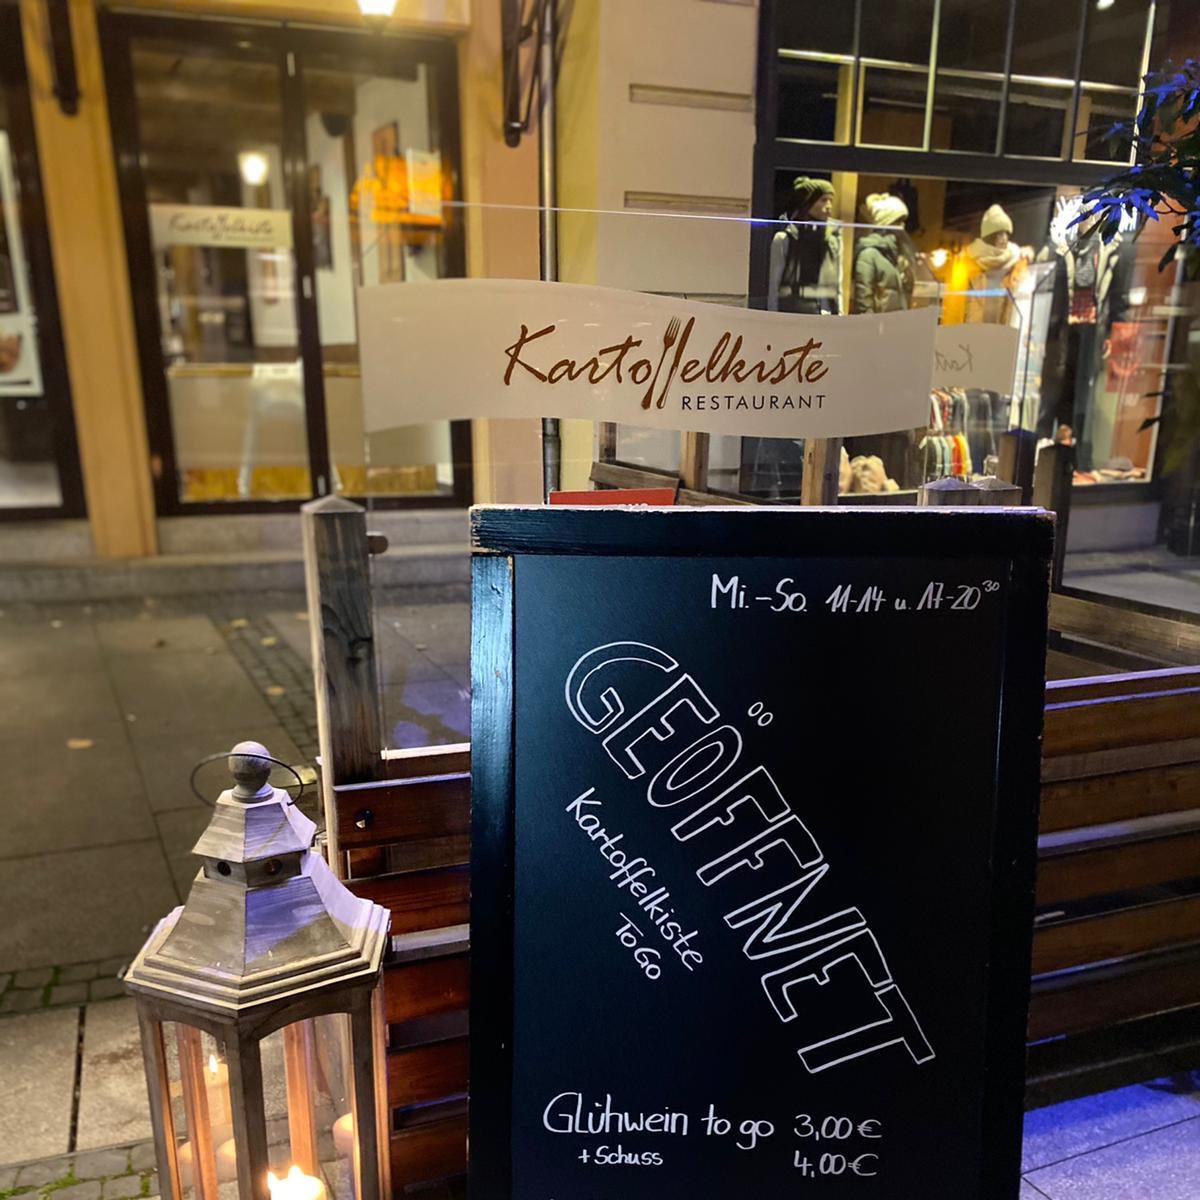 Kartoffelkiste
RESTAURANT
Kartoffelkiste
RESTAURANT
Mi.-So. 11-14 u. 17-20³⁰
GEÖFFNET
Kartoffelkiste
To Go
Glühwein to go 3,00 €
+ Schuss 4,00 €